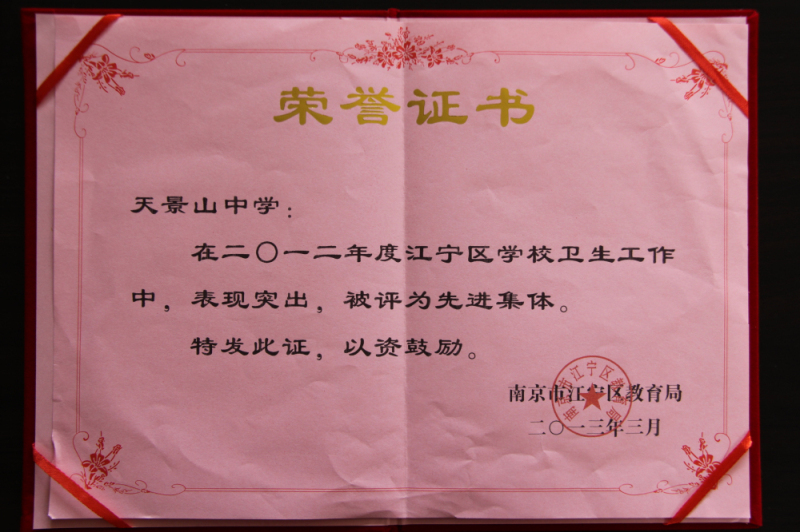 荣誉证书
天景山中学：
在二〇一二年度江宁区学校卫生工作
中，表现突出，被评为先进集体。
特发此证，以资鼓励。
南京市江宁区教育局
二〇一三年三月
南京市江宁区教育局